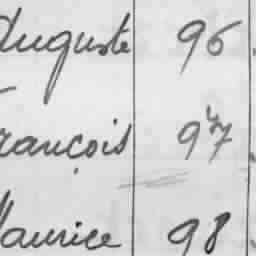 Auguste 96
François 97
Maurice 98